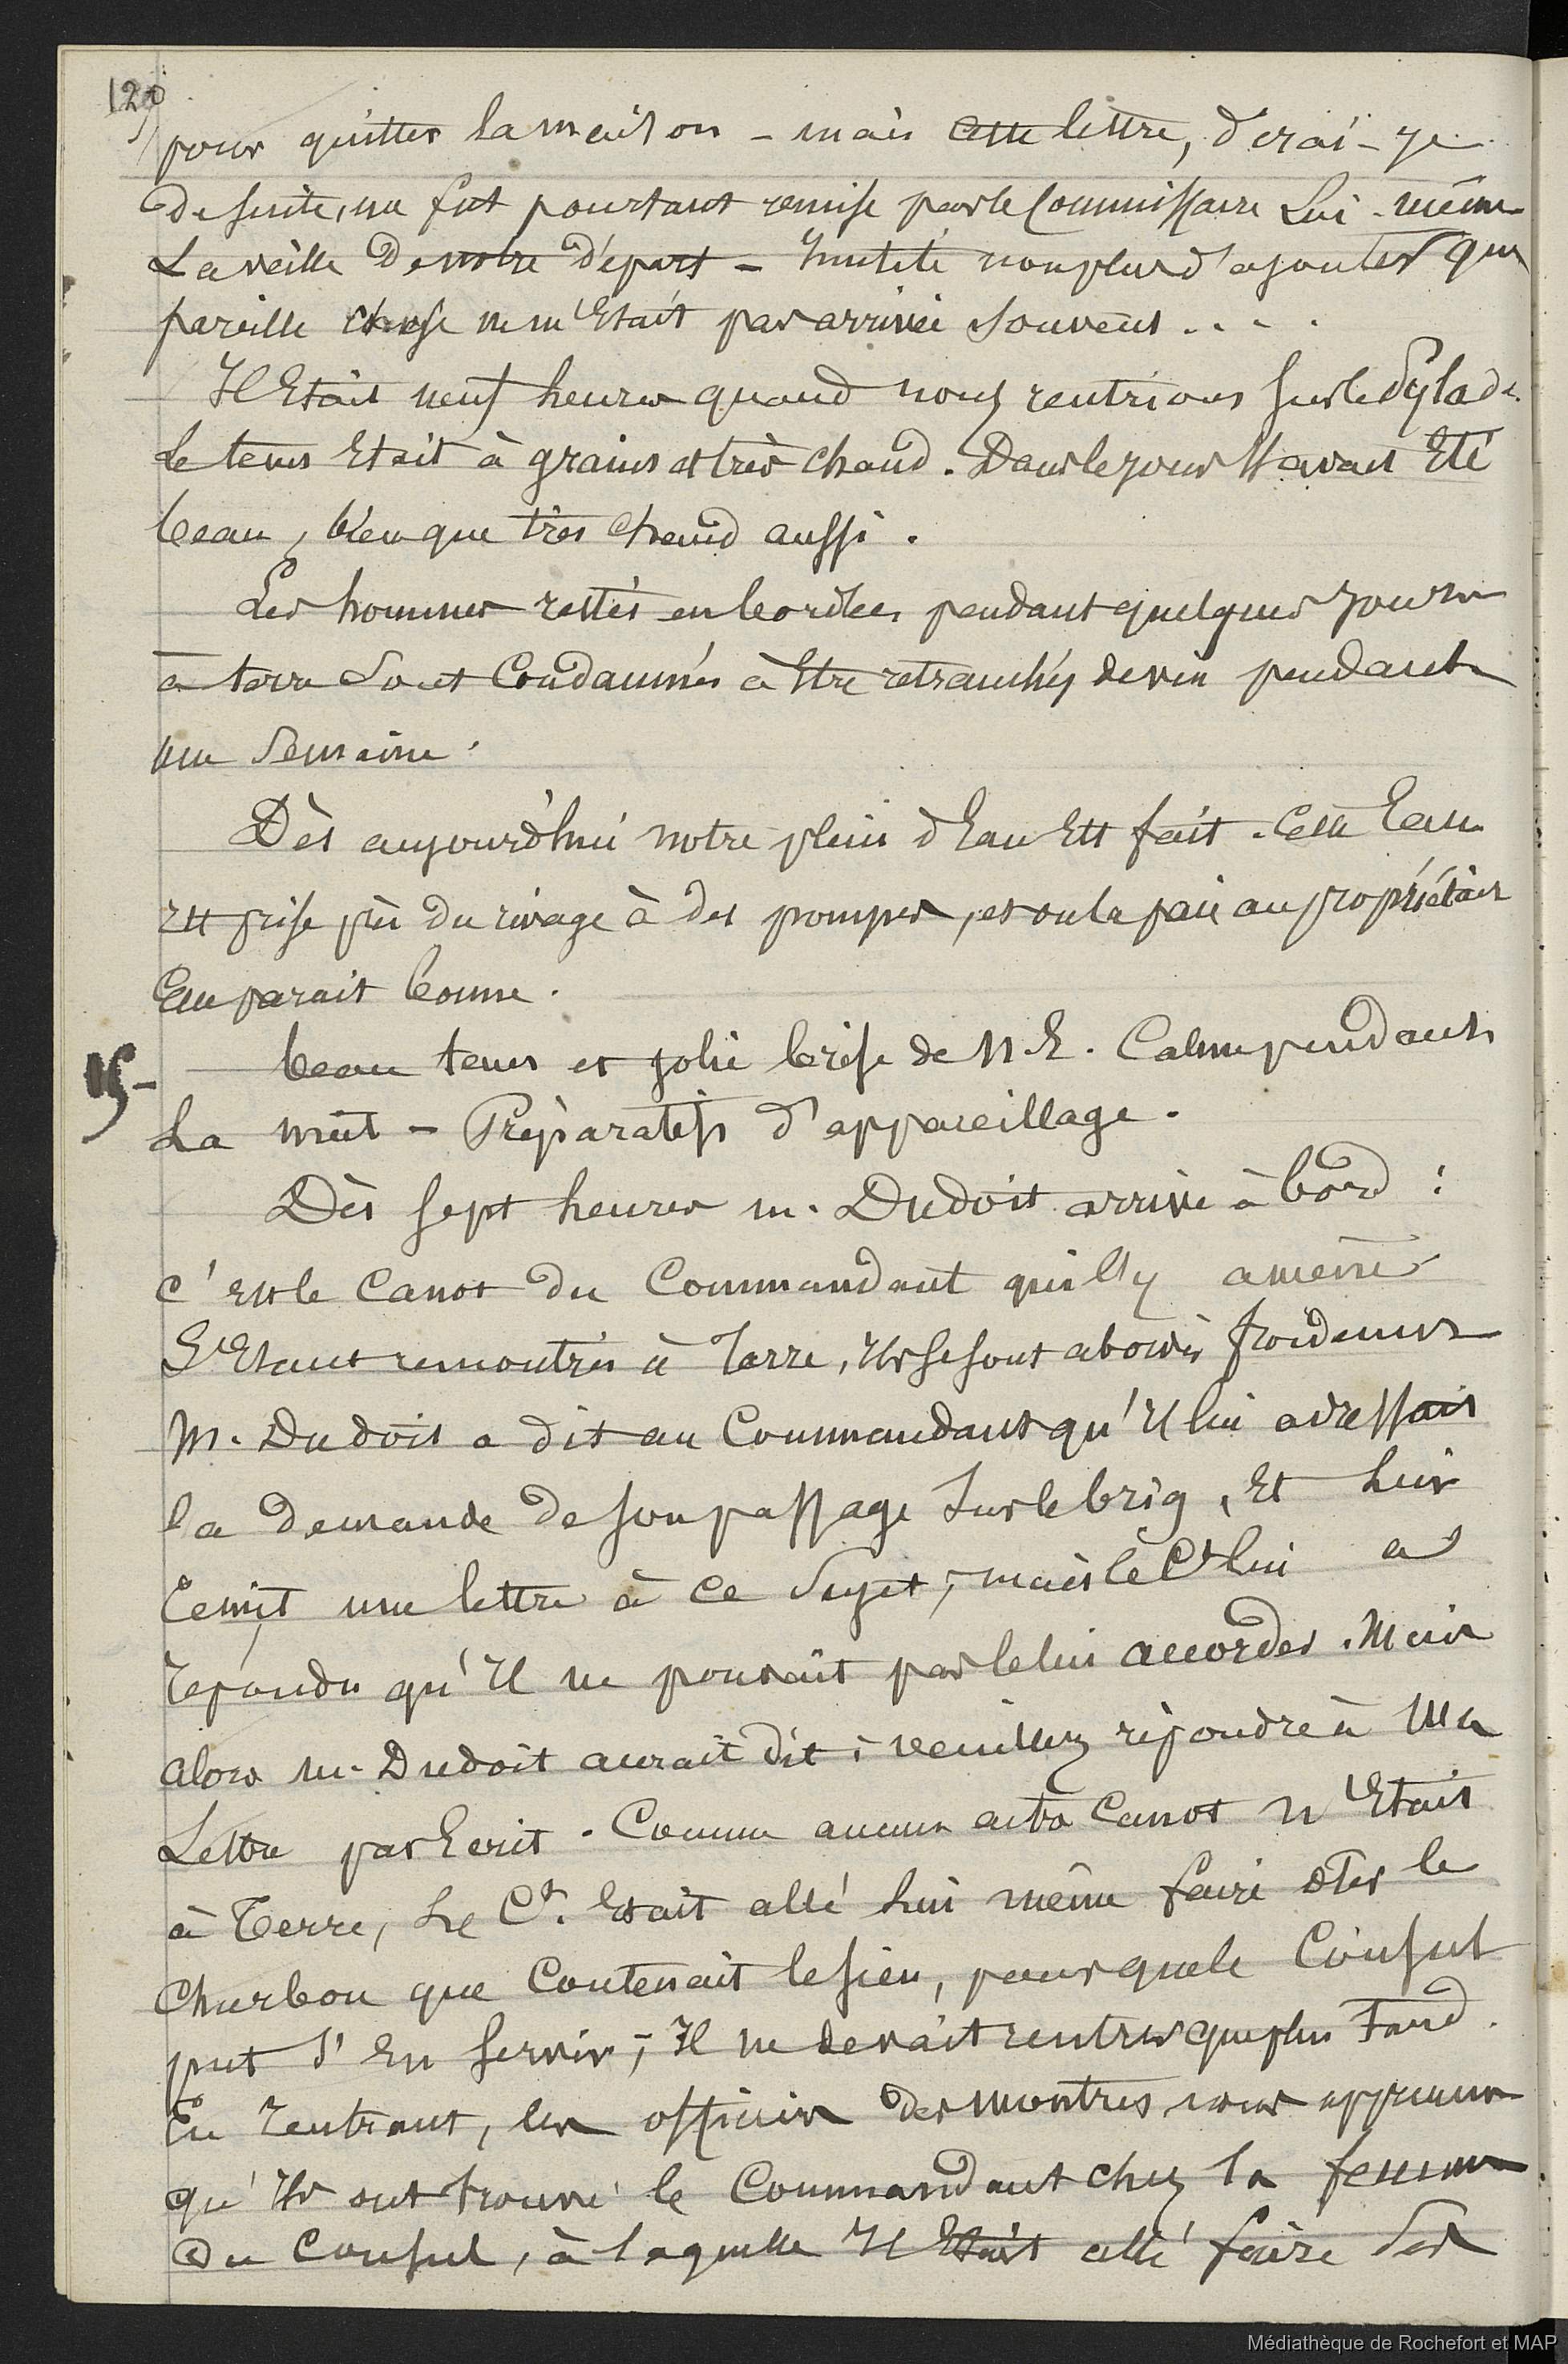 120
pour quitter la maison - mais cette lettre, dirai-je
de suite, me fut pourtant remise par le Commissaire Lui-même
La veille De notre départ - Inutile non plus d'ajouter que
pareille chose ne m'Etait pas arrivée souvent . . . .
Il Etait neuf heures quand nous rentrions sur le Pylade.
Le tems Etait à grains et très chaud. Dans le jour Il avait Eté
beau, bien que très chaud aussi.
Les hommes restés en bordées pendant quelques jours
à terre sont Condamnés à Etre retranchés de vin pendant
une Semaine.
Dès aujourd'hui notre plein d'Eau Est fait. Cette Eau
Est prise près du rivage à des pompes, et on la paie au propriétaire
Elle parait bonne.
15- beau tems et jolie brise de N.E. Calme pendant
La nuit - Préparatifs d'appareillage.
Dès sept heures m. Dudoit arrive à bord :
c'Est le Canot du Commandant qui l'y amène
S'Etant rencontrés à Terre, Ils se sont abordés froidement
M. Dudoit a dit au Commandant qu'Il lui adressait
la demande de son passage sur le brig, Et Lui
remit une lettre à ce Sujet ; mais le Ct lui a
répondu qu'Il ne pouvait pas le lui accorder. Mais
alors m. Dudoit aurait dit : veuillez répondre à Ma
Lettre par Ecrit. Comme aucun autre Canot n'Etait
à Terre, Le Ct. Etait allé lui même faire ôter le
Charbon que Contenait le sien, pour que le Consul
put s'En servir ; Il ne devait rentrer que plus Tard.
En rentrant, les officiers des montres nous apprennent
qu'Ils ont trouvé le Commandant chez la femme
Du Consul, à laquelle Il Etait allé faire Ses
Médiathèque de Rochefort et MAP